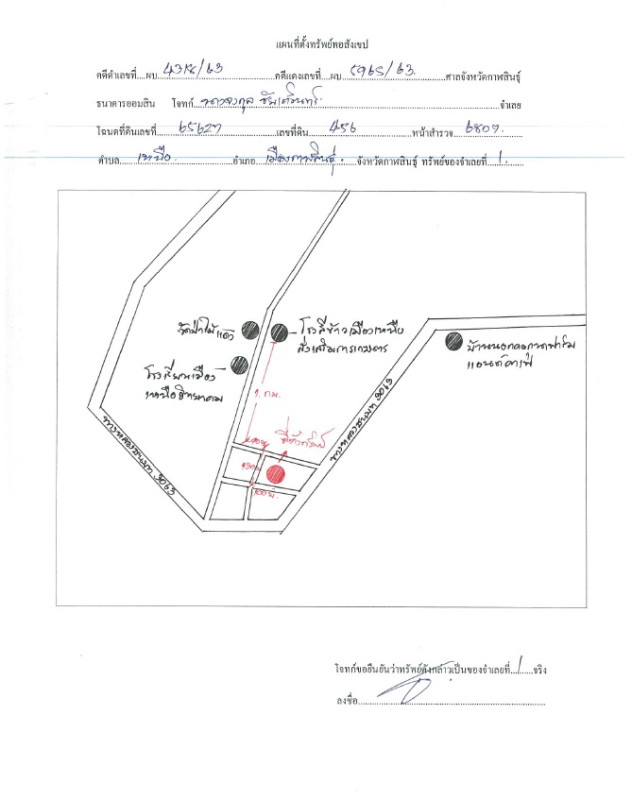 แผนที่ตั้งทรัพย์พอสังเขป
คดีดำเลขที่....ผบ. /63 คดีแดงเลขที่...ผบ. 5965/63 ศาลจังหวัดกาฬสินธุ์
ธนาคารออมสิน โจทก์ จำเลย
โฉนดที่ดินเลขที่ 65627 เลขที่ดิน 456 หน้าสำรวจ 6807
ตำบล เหนือ อำเภอ เมืองกาฬสินธุ์ จังหวัดกาฬสินธุ์ ทรัพย์ของจำเลยที่ 1
วัดป่าไม้แดง
โรงสีข้าวเมืองเหนือ
ส่งเสริมการเกษตร
บ้านนอกคอกนาฟาร์ม
แอนด์คาเฟ่
โรงเรียนเมือง
เหนือวิทยาคม
1 กม.
ทางหลวงชนบท 3063
ทางหลวงชนบท 3063
ที่ตั้งทรัพย์
100 ม.
โจทก์ขอยืนยันว่าทรัพย์ดังกล่าวเป็นของจำเลยที่ 1 จริง
ลงชื่อ